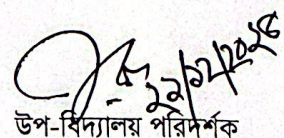 ২২/১২/২০২৪
উপ-বিদ্যালয় পরিদর্শক